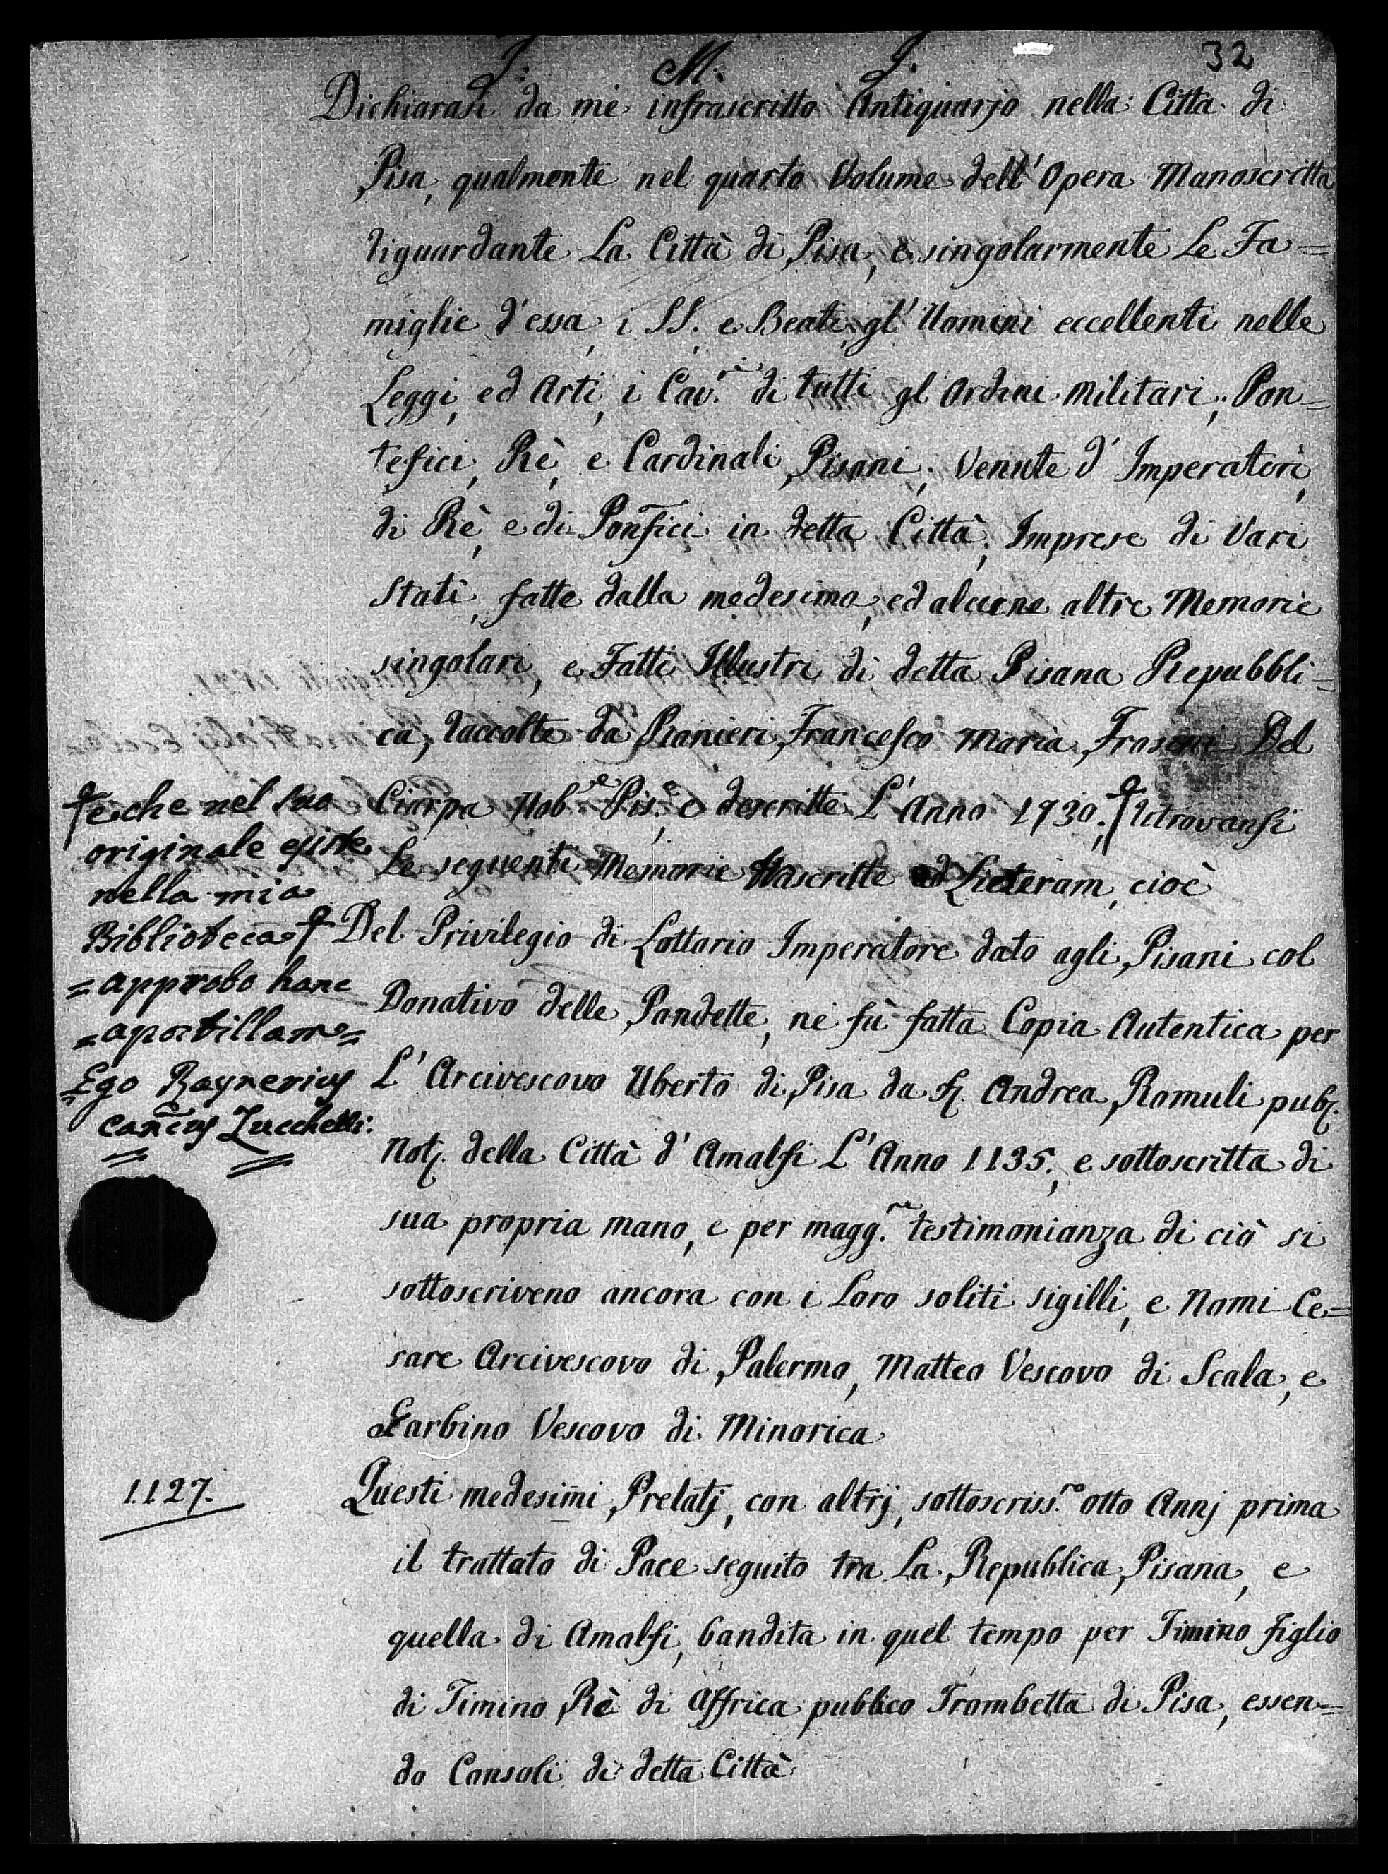 32
J. M. J.
Dichiarasi da me infrascritto Antiquario nella Città di
Pisa, qualmente nel quarto Volume dell'Opera Manoscritta
riguardante La Città di Pisa, e singolarmente Le Fa=
miglie d'essa, i SS. e Beati, gl'Uomini eccellenti nelle
Leggi, ed Arti, i Cav.ri di tutti gl Ordini militari; Pon=
tefici, Rè, e Cardinali Pisani; Venute d'Imperatori,
di Rè, e di Ponfici in detta Città; Imprese di Vari
Stati, fatte dalla medesima, ed alcune altre Memorie
singolari, e Fatti Illustri di detta Pisana Repubbli=
ca, raccolte da Ranieri Francesco Maria Frosini Del
Ciarpa Nob.e Pis.o e descritte L'Anno 1730; † ritrovansi
Le seguenti Memorie ad Literam, cioè
† e che nel suo
originale esiste
nella mia
Biblioteca †
= approbo hanc
= apostillam =
= Ego Raynerius
can.cus Zucchelli.
Del Privilegio di Lottario Imperatore dato agli Pisani col
Donativo delle Pandette, ne fù fatta Copia Autentica per
L'Arcivescovo Uberto di Pisa da Andrea Romuli pub.
Not. della Città d'Amalfi L'Anno 1135., e sottoscritta di
sua propria mano, e per magg.re testimonianza di ciò si
sottoscriveno ancora con i Loro soliti sigilli, e Nomi Ce=
sare Arcivescovo di Palermo, Matteo Vescovo di Scala, e
Garbino Vescovo di Minorica
1127.
Questi medesimi Prelatj, con altrj, sottoscriss.ro otto Annj prima
il trattato di Pace seguito tra La Republica Pisana, e
quella di Amalfi, bandita in quel tempo per Timino figlio
di Timino Rè di Affrica pubbco Trombetta di Pisa, essen=
do Consoli di detta Città